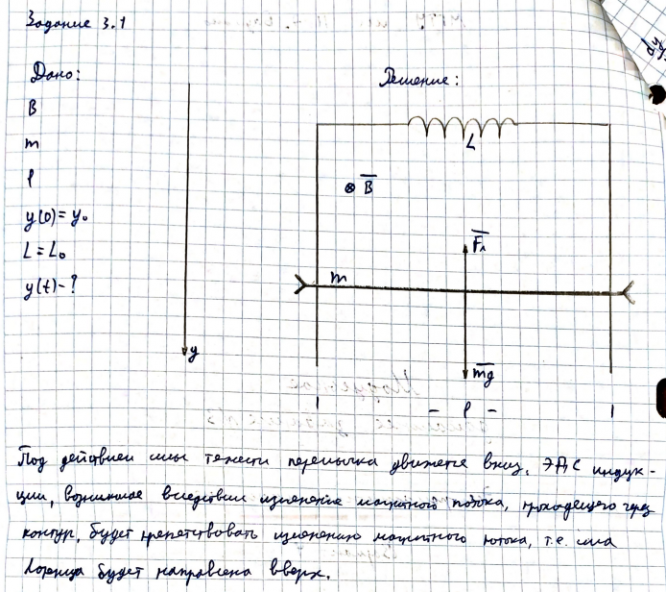 Задание 3.1
Дано:
Решение:
B
m
l
y(0)=y₀
L=L₀
y(t)-?
y
L
⊗ B̅
F̅л
m
m̅g̅
l - l - l
Под действием силы тяжести перемычка движется вниз, ЭДС индук-
ции, возникшая вследствии изменения магнитного потока, проходящего через
контур, будет препятствовать изменению магнитного потока, т.е. сила
Лоренца будет направлена вверх.